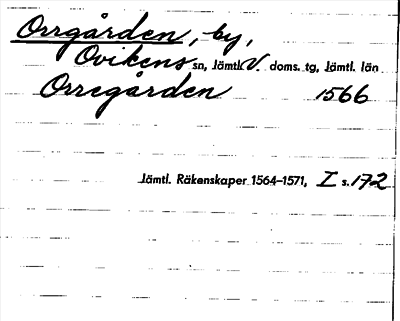 Orrgården, by,
Ovikens sn, Jämtl. V. doms. tg, Jämtl. län
Orregården 1566
Jämtl. Räkenskaper 1564–1571, I s. 172